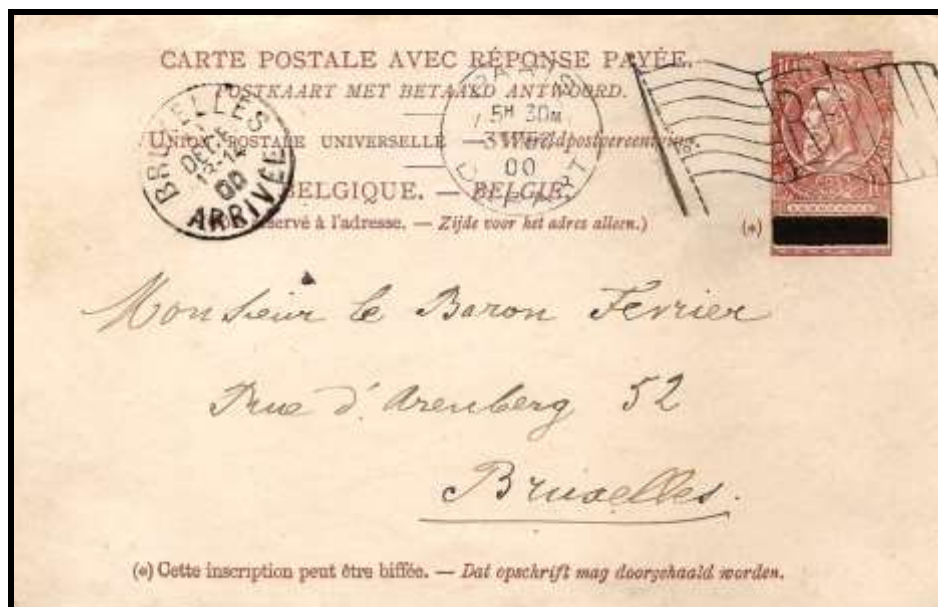 CARTE POSTALE AVEC RÉPONSE PAYÉE.
POSTKAART MET BETAALD ANTWOORD.
UNION POSTALE UNIVERSELLE — Wereldpostvereeniging
BELGIQUE. — BELGIE.
réservé à l'adresse. — Zijde voor het adres alleen.)
BRUXELLES
DECE
00
ARRIVÉE
5H 30M
00
(*)
Monsieur le Baron Fevrier
Rue d'Arenberg 52
Bruxelles.
(*) Cette inscription peut être biffée. — Dat opschrift mag doorgehaald worden.